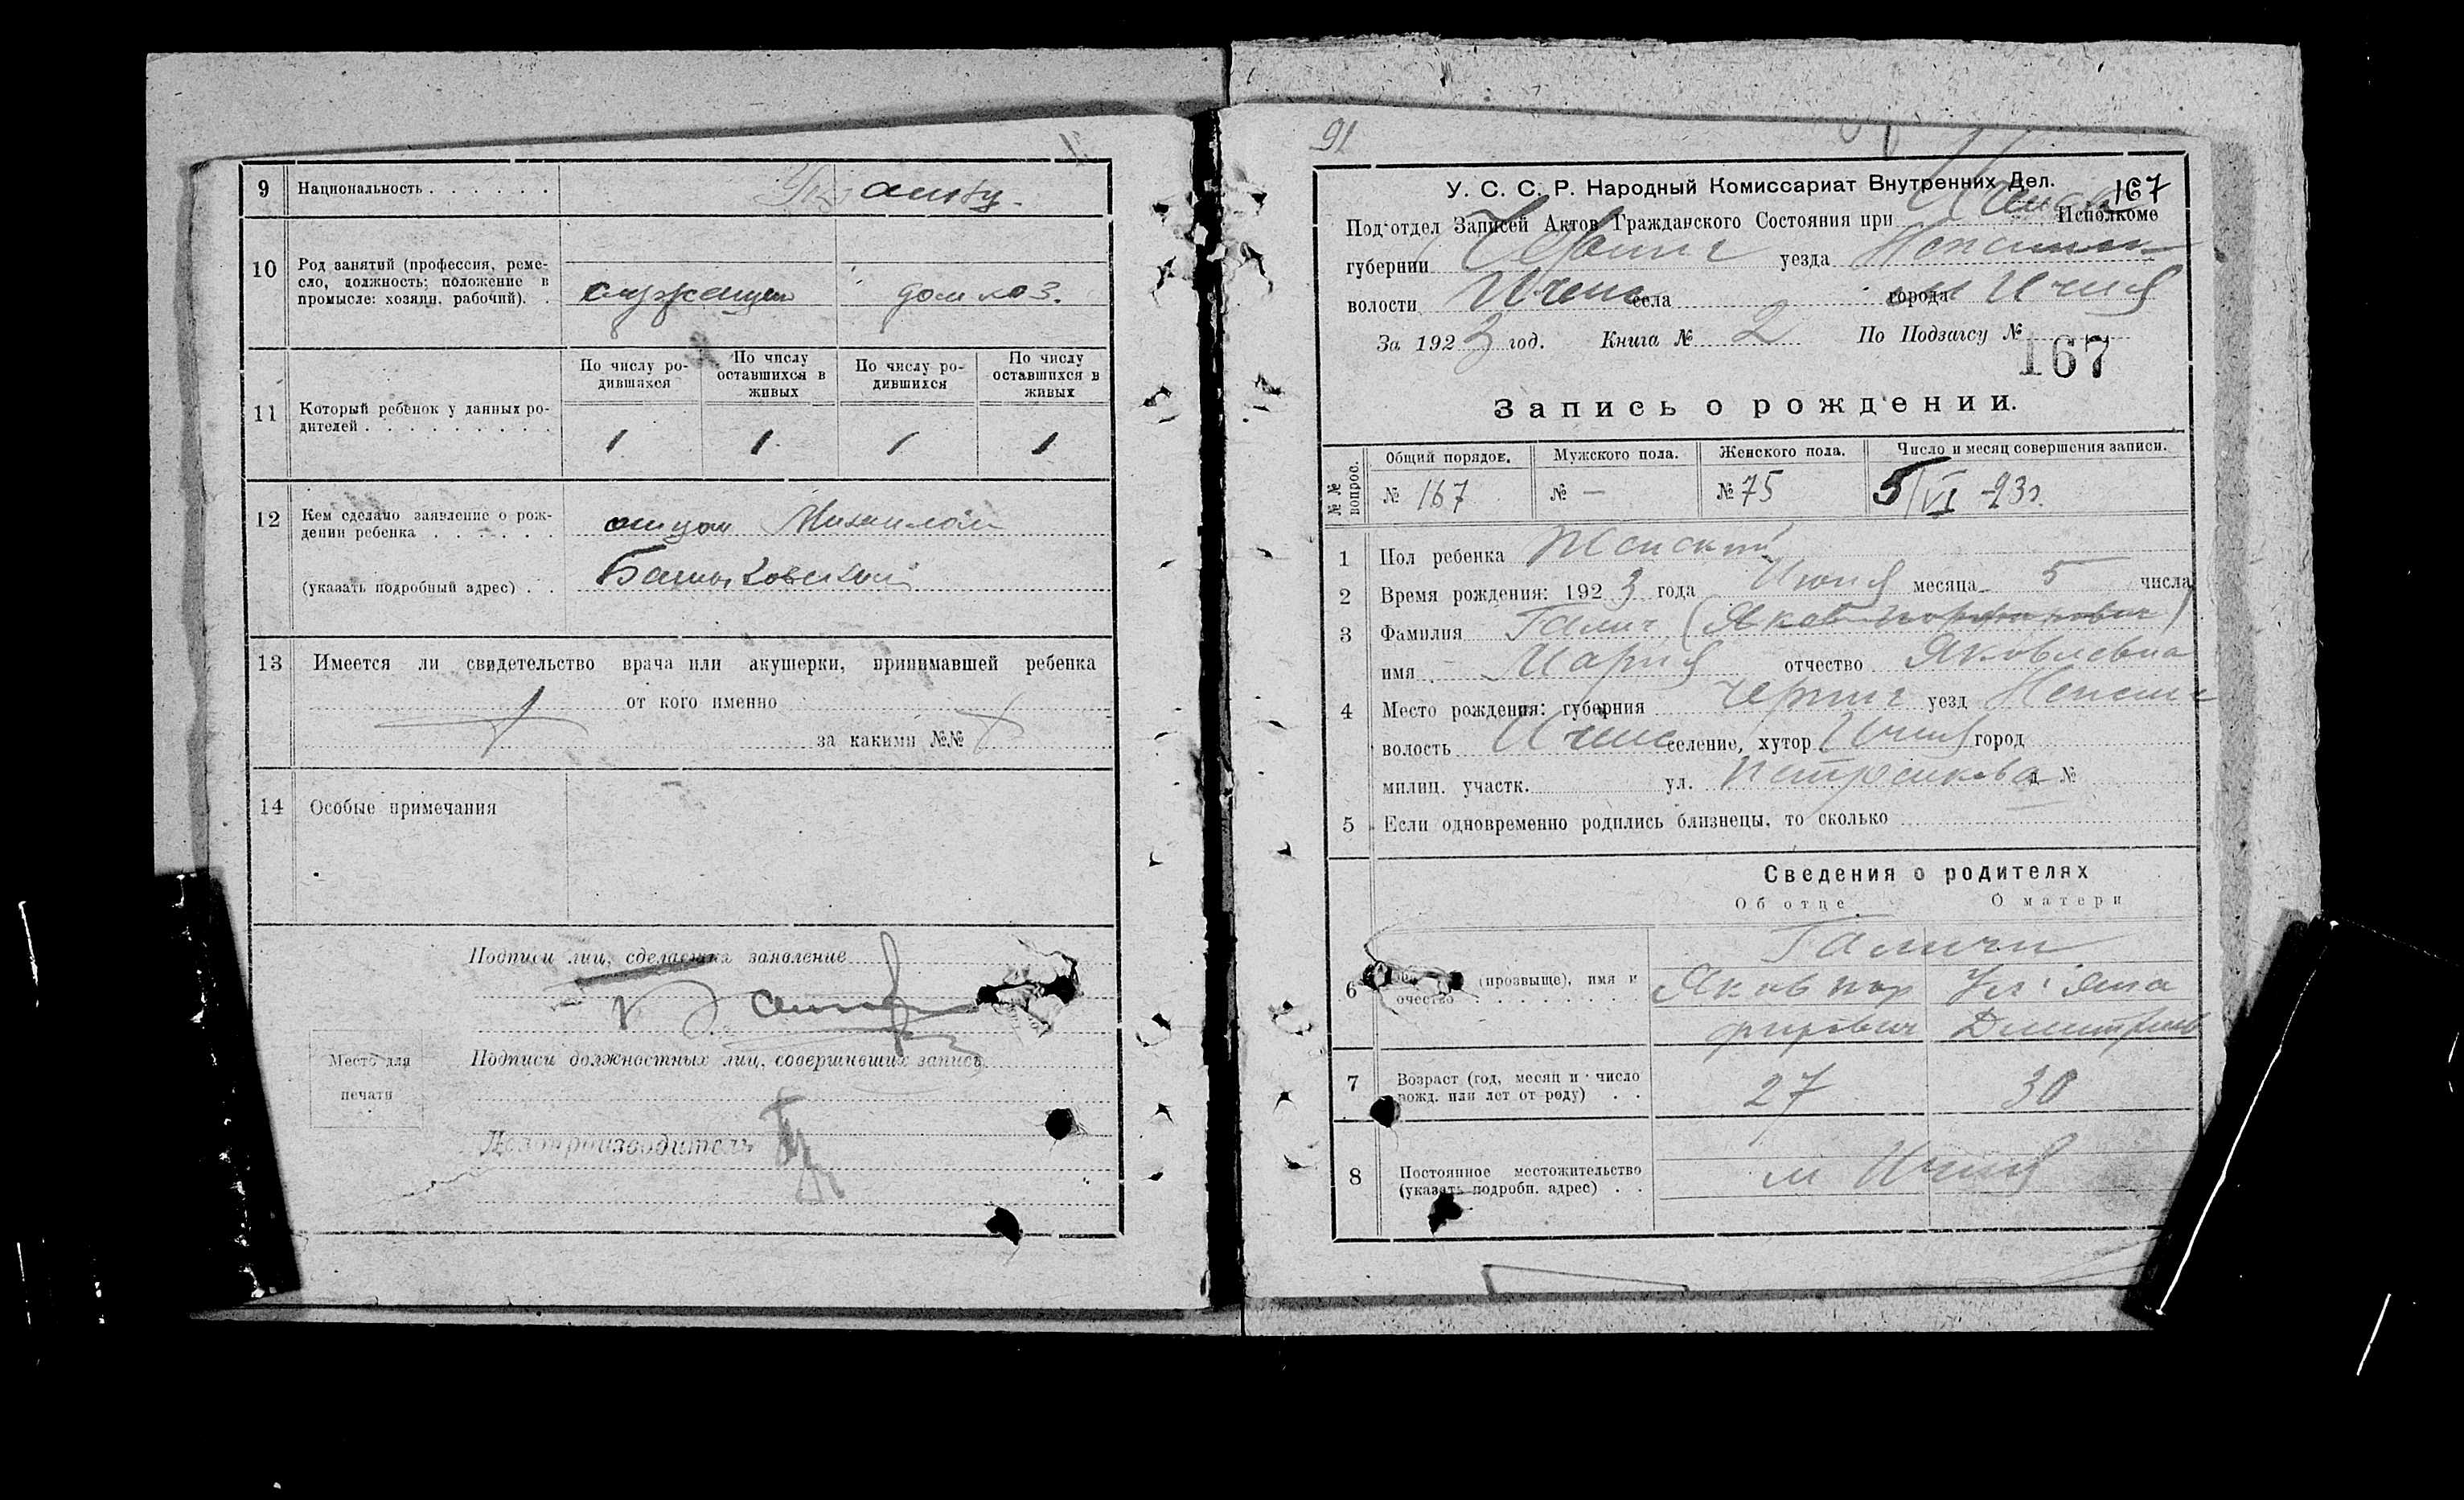 9 Национальность . . . . . .
10 Род занятий (профессия, реме-
сло, должность; положение в
промысле: хозяин, рабочий). .
служащий домхоз.
По числу ро-
дившихся
По числу
оставшихся в
живых
По числу ро-
дившихся
По числу
оставшихся в
живых
11 Который ребенок у данных ро-
дителей . . . . . . . . .
1 1 1 1
12 Кем сделано заявление о рож-
дении ребенка . . . . . .
отцом Михаилом
(указать подробный адрес) . .
13 Имеется ли свидетельство врача или акушерки, принимавшей ребенка
от кого именно
за какими №№
14 Особые примечания
Подписи лиц, сделавших заявление
Подписи должностных лиц, совершивших запись
Место для
печати
Делопроизводитель
91
У. С. С. Р. Народный Комиссариат Внутренних Дел.
167
Под'отдел Записей Актов Гражданского Состояния при Ичнян Исполкоме
губернии Черниг уезда
волости Ичнян села города м Ичня
За 1923 год. Книга № 2 По Подзагсу № 167
Запись о рождении.
№№ вопрос.
Общий порядок. Мужского пола. Женского пола. Число и месяц совершения записи.
№ 167 № — № 75 5/VI -23г.
1 Пол ребенка Женский
2 Время рождения: 1923 года Июня месяца 5 числа
3 Фамилия Галич (Яков Порфирович)
имя Мария отчество Яковлевна
4 Место рождения: губерния Черниг уезд Нежинс
волость Ичнянс селение, хутор Ичня город
милиц. участк. ул. д №
5 Если одновременно родились близнецы, то сколько
Сведения о родителях
Об отце О матери
Галичи
6 (прозвыще), имя и
очество . . . . . . . .
Яков Пор Ул'яна
фирович Дмитриев
7 Возраст (год, месяц и число
рожд. или лет от роду) . .
27 30
8 Постоянное местожительство
(указать подробн. адрес) . .
м Ичня